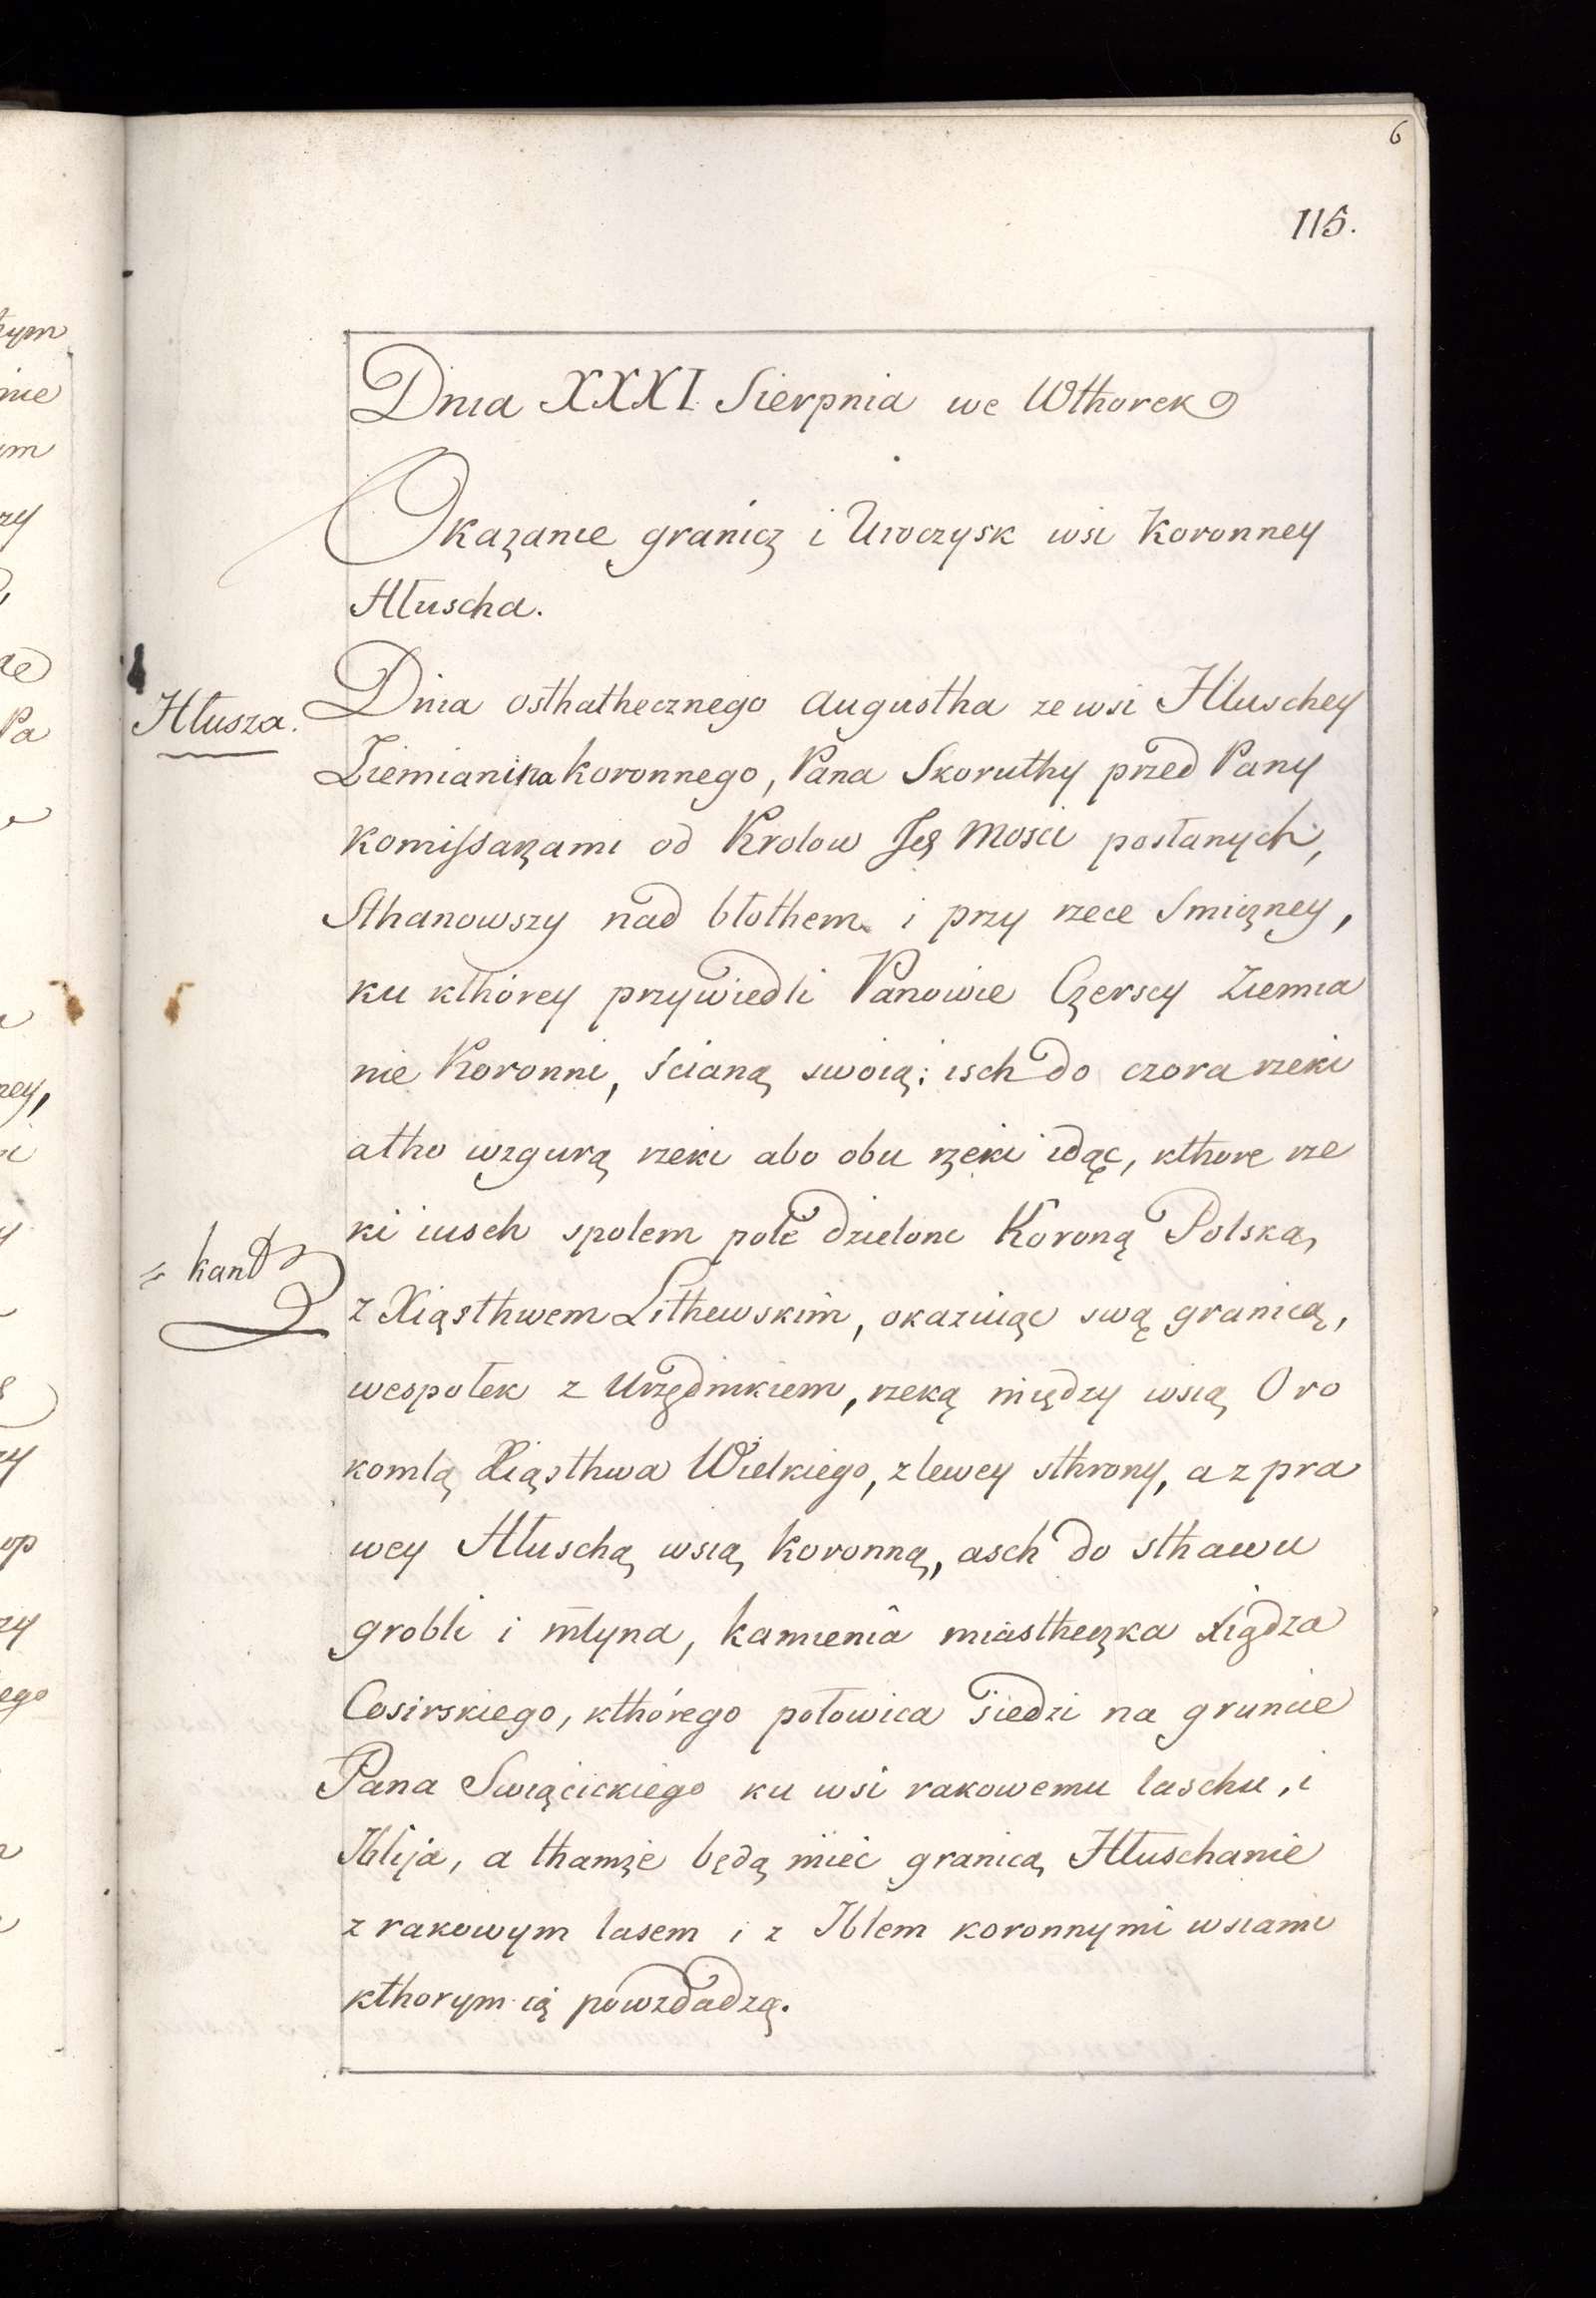 6
115.
Dnia XXXI Sierpnia we Wthorek
Okazanie granicz i Uroczysk wsi Koronney
Hłuscha.
Hłusza.
Dnia osthathecznego Augustha ze wsi Hłuschey
Ziemianina Koronnego, Pana Skoruthy przed Pany
Komissarzami od Krolow Jeg Mosci posłanych,
Sthanowszy nad błothem i przy rzece Smiczney,
ku kthórey przywiedli Panowie Czerscy Ziemia
nie Koronni, ścianą swoią; isch do czora rzeki
atho wzgurą rzeki abo obu rzeki idąc, kthore rze
ki iusch społem pole dzielone Koroną Polską,
kand
z Xiąsthwem Lithewskim, okazuiąc swą granicą,
wespołek z Urzędnikiem, rzeką między wsią Oro
komlą Xiąsthwa Wielkiego, z lewey sthrony, a z pra
wey Hłuschą wsią Koronną, asch do sthawu
grobli i młyna, kamienia miastheczka Xigdza
Cosirskiego, kthórego połowica siedzi na gruncie
Pana Swiącickiego ku wsi rakowemu laschu, i
Iblija, a thamże będą mieć granicą Hłuschanie
z rakowym lasem i z Iblem koronnymi wsiami
kthorym ią powzdadzą.